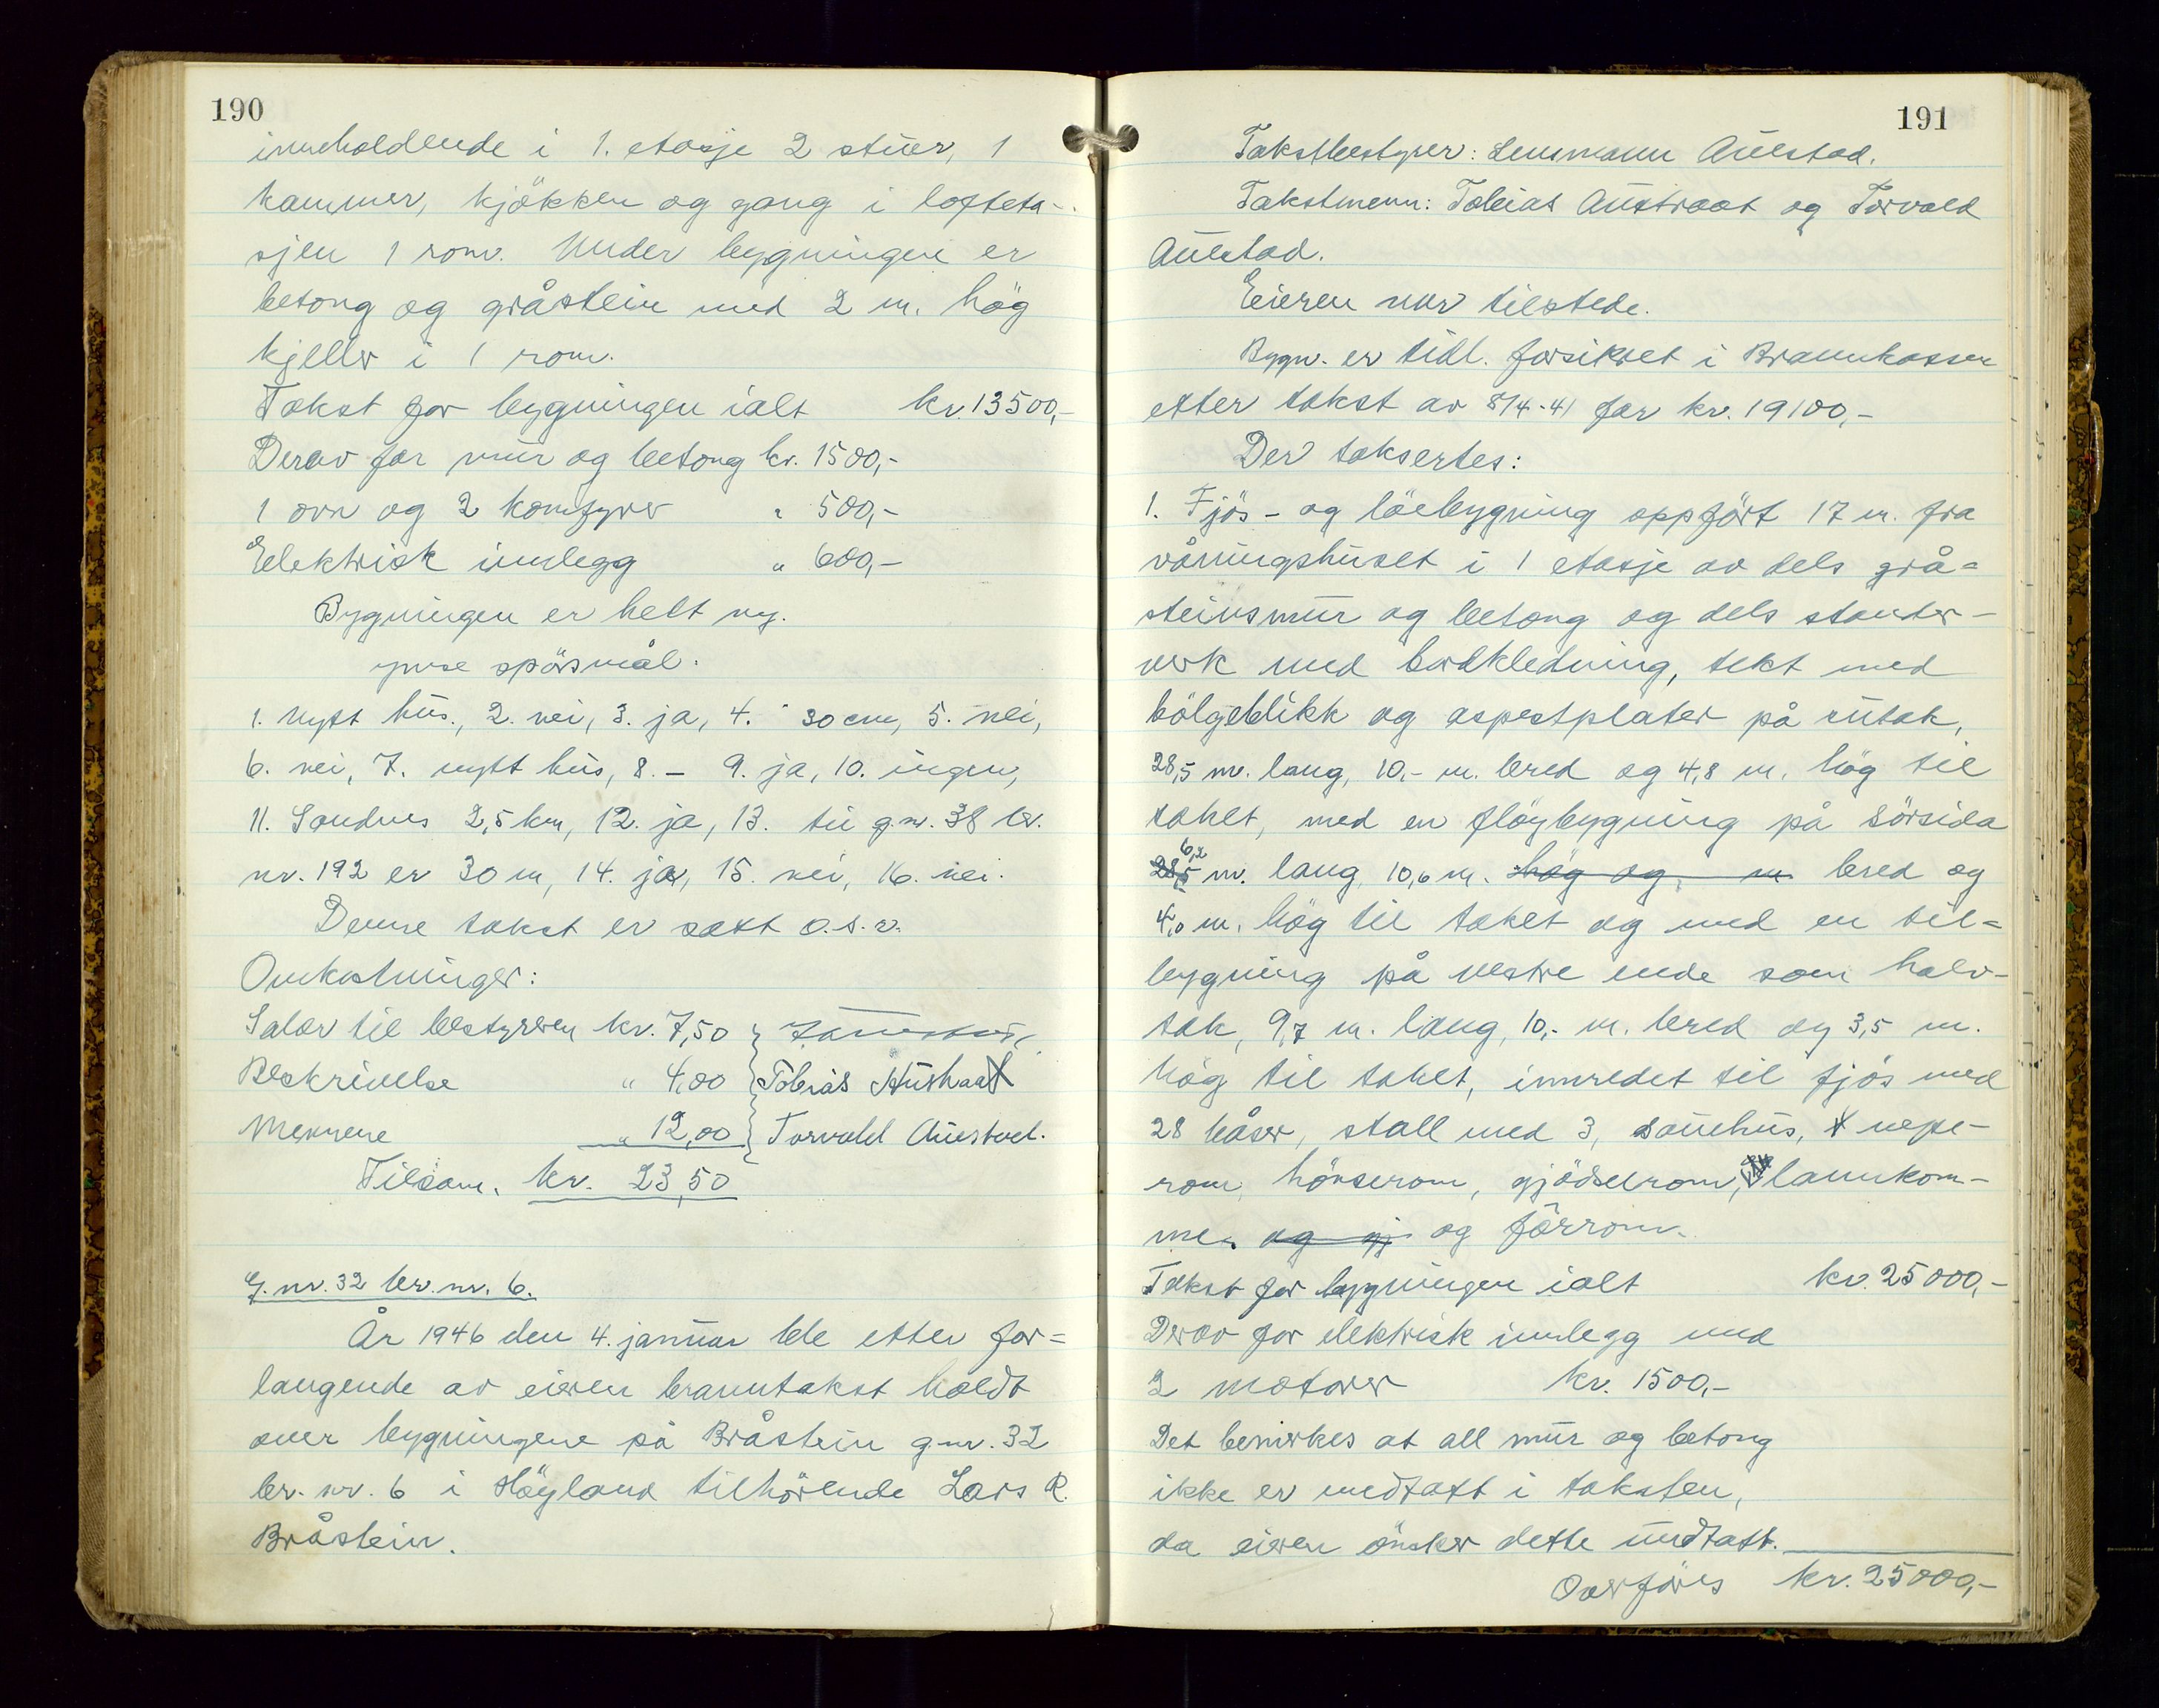 190
inneholdende i 1. etasje 2 stuer, 1
kammer, kjökken og gang i lofteta-
sjen 1 rom. Under bygningen er
betong og gråstein med 2 m. hög
kjeller i 1 rom.
Takst for bygningen ialt kr. 13500,-
Derav for mur og betong kr. 1500,-
1 ovn og 2 komfyrer " 500,-
Elektrisk innlegg " 600,-
Bygningen er helt ny.
ymse spörsmål.
1. nytt hus., 2. nei, 3. ja, 4. 30 cm, 5. nei,
6. nei, 7. nytt hus, 8. – 9. ja, 10. ingen,
11. Sandnes 2,5 km, 12. ja, 13. til g.nr. 38 br.
nr. 192 er 30 m, 14. ja, 15. nei, 16. nei.
Denne takst er satt o.s.v.
Omkostninger:
Salær til bestyreren kr. 7,50
Beskrivelse " 4,00 Tobias Austraat
Mennene " 12,00 Torvald Auestad.
Tilsam. kr. 23,50
G. nr. 32 br. nr. 6.
År 1946 den 4. januar ble etter for=
langende av eieren branntakst holdt
over bygningene på Bråstein g.nr. 32
br. nr. 6 i Höyland tilhörende Lars R.
Bråstein.
191
Takstbestyrer: Lensmann Auestad.
Takstmenn: Tobias Austraat og Torvald
Auestad.
Eieren var tilstede.
Bygn. er tidl. forsikret i Brannkassen
etter takst av 8/4-41 for kr. 19100,-
Der taksertes:
1. Fjös- og löebygning oppfört 17 m. fra
våningshuset i 1 etasje av dels grå=
steinsmur og betong og dels stender-
verk med bordkledning, tekt med
bölgeblikk og aspestplater på sutak,
28,5 m. lang, 10,- m. bred og 4,8 m. hög til
taket, med en flöybygning på sörsida
6,2
28,5 m. lang, 10,6 m. hög og m bred og
4,0 m. hög til taket og med en til=
bygning på vestre ende som halv-
tak, 9,7 m. lang, 10,- m. bred og 3,5 m.
hög til taket, innredet til fjös med
28 båser, stall med 3, sauehus, nepe-
rom, hönserom, gjödselrom, lannkom-
me og gj og fôrrom.
Takst for bygningen ialt kr. 25000,-
Derav for elektrisk innlegg med
2 motorer kr. 1500,-
Det bemerkes at all mur og betong
ikke er medtatt i taksten,
da eieren önsker dette undtatt.
Overföres kr. 25000,-